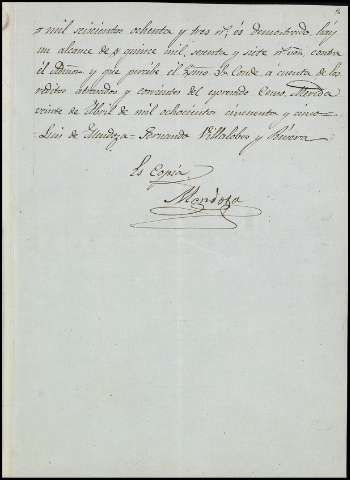 mil seiscientos ochenta y tres r.s és demostrado hay
un alcance de quince mil, setenta y siete r.s von, contra
él Admor y que percibe el Exmo Sr Conde á cuenta de los
reditos atrasados y corrientes del espresado Censo, Merida
veinte de Abril de mil ochocientos cincuenta y cinco=
Luis de Mendoza= Fernando Villalobos y Rivera
Es Copia
Mendoza